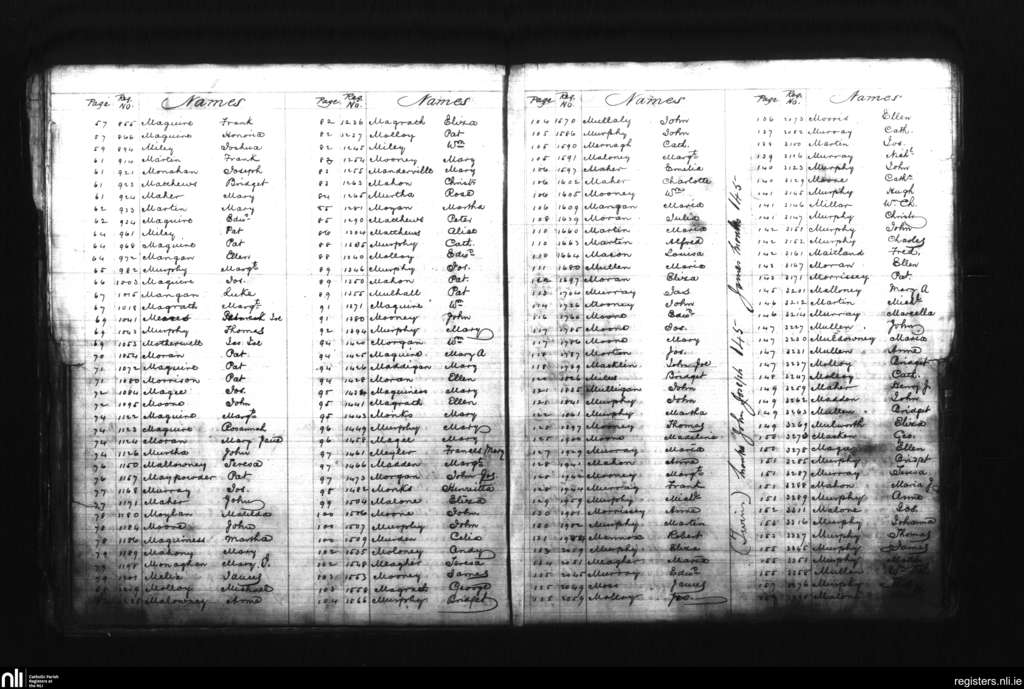 Page Reg. No. Names
57 855 Maguire Frank
57 866 Maguire Honoria
59 894 Miley Joshua
61 914 Martin Frank
61 921 Monahan Joseph
61 923 Matthews Bridget
61 924 Maher Mary
62 933 Martin Mary
62 934 Maguire Edwd
64 961 Miley Pat
64 968 Maguire Pat
64 972 Mangan Ellen
65 982 Murphy Margt
66 1003 Maguire Jos.
67 1015 Mangan Luke
67 1018 Magrath Margt
69 1041
69 1043 Murphy Thomas
69 1053 Motherwell
70 1054 Moran Pat
71 1072 Maguire Pat
71 1080 Morrison Pat
72 1084 Magee Jos
72 1095 Moore John
74 1122 Maguire Margt
74 1123 Maguire Rosannah
74 1124 Moran Mary Jane
74 1126 Murtha John
76 1150 Mallowney Teresa
76 1157 Maypowder Pat
77 1168 Murray Jos.
77 1171 Maher John
78 1180 Moylan Matilda
78 1184 Moore John
78 1186 Maguiness Martha
79 1189 Mahony Mary
79 1198 Monaghan Mary P.
79 1201 James
Molloy Michael
Malowney Anne
Page Reg. No. Names
82 1236 Magrath Eliza
82 1237 Molloy Pat
82 1245 Miley Wm
83 1254 Mooney Mary
83 1255 Manderville Mary
83 1263 Mahon Christr
84 1265 Murtha Rose
85 1281 Moyan Martha
85 1290 Matthews Peter
86 1304 Matthews Alice
88 1335 Murphy Cath.
88 1340 Molloy Edwd
89 1346 Murphy Jos.
89 1350 Mahon Pat
89 1355 Mulhall Pat
91 1371 Maguire Wm
91 1380 Mooney John
92 1394 Murphy Mary
94 1420 Morgan Wm
94 1425 Maguire Mary A
94 1426 Maddigan Mary
94 1428 Moran Ellen
95 1438 Maguiness Mary
95 1441 Magrath Ellen
95 1443 Monks Mary
96 1449 Murphy Mary
96 1458 Magee Mary
97 1461 Meyler Frances Mary
97 1466 Madden Margt
97 1473 Morgan John Jos.
98 1482 Monks Henrietta
99 1504 Malone Eliza
100 1506 Moore John
100 1507 Murphy John
102 1509 Murden Celia
102 1535 Moloney Andy
102 1548 Meagher Teresa
103 1553 Mooney James
103 1558 Magrath George
104 1566 Murphy Bridget
Page Reg. No. Names
104 1570 Mullaly John
105 1586 Murphy John
105 1590 Mernagh Cath.
105 1591 Maloney Margt
106 1597 Maher Emelia
106 1602 Maher Charlotte
106 1605 Mooney Wm
106 1609 Mangan Maria
108 1639 Moran Julia
110 1660 Martin Maria
110 1663 Martin Alfred
110 1664 Mason Louisa
111 1680 Mullen Maria
112 1697 Moran Eliza
113 1704 Murray Jas
114 1726 Mooney John
116 1760 Moore Edwd
117 1785 Moore Jos.
117 1786 Moore Mary
118 1787 Morton Jos.
118 1789 John Jos
Bridget
121 1835 Mulligan John
121 1841 Murphy John
122 1861 Murphy Martha
125 1897 Mooney Thomas
125 1900 Moore Madeline
127 1929 Murray Maria
128 1941 Mahon Anne
128 1942 Mooney Margt
128 1944 Murray Frank
129 1959 Murphy Michl
130 1901 Morrissey Anne
130 1902 Murphy Martin
131 Robert
133 2039 Murphy Eliza
134 2031 Meagher Maria
135 2045 Murray Edwd
135 2049 Moss James
135 2059 Molloy Jos.
(Twin) Monks John Joseph 1445 - James Monks 1445 -
Page Reg. No. Names
136 2073 Morris Ellen
137 2082 Murray Cath.
139 2100 Martin Jos.
139 2116 Murray Michl
140 2123 Murphy John
140 2129 Moore Cathe
141 2145 Murphy Hugh
141 2146 Millar W. Ch.
141 2147 Murphy Christr
142 2151 Murphy John
142 2152 Murphy Charles
142 2161 Maitland Fred.
143 2167 Moran Ellen
143 2171 Morrissey Pat.
145 2201 Malloney Mary A
146 2212 Martin Michl
146 2214 Murray Marcella
147 2227 Mullen John
147 2230 Muldowney Maria
147 2231 Mullen Anne
147 2237 Molloy Bridget
148 Molloy Cath.
149 2259 Maher Henry J.
149 2262 Madden John
149 2263 Mullen Bridget
149 2269 Mulworth Eliza
150 2276 Macken Geo.
150 2278 Ellen
151 2285 Murphy Bridget
151 2287 Murray Teresa
151 2288 Mahon Maria J.
151 2289 Murphy Anne
152 2311 Malone Jos.
153 2316 Murphy Johanna
155 2327 Murphy Thomas
155 2345 Murphy James
155 2351 Murphy
155 2355 Mullen
157 2376 Murphy
Malone
nli
Catholic Parish Registers at the NLI
registers.nli.ie